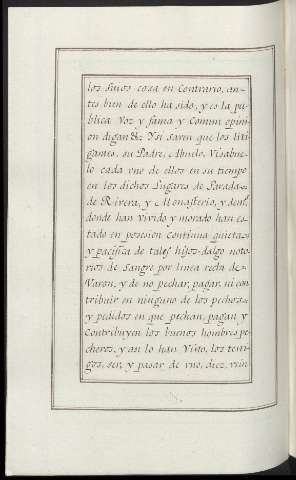 los suios cosa en contrario, an-
tes bien de ello ha sido, y es la pu-
blica Voz y fama y Comun opini
on digan &c Ysi saven que los liti
gantes, su Padre, Abuelo, Visabue-
lo cada uno de ellos en su tiempo
en los dichos Lugares de Parada
de Rivera, y Monasterio, y demas
donde han vivido y morado han es-
tado en posesion continua quieta-
y pacifica de tales hijos-dalgo noto-
rios de Sangre por linea recta de-
Varon, y de no pechar, pagar, ni con
tribuir en ninguno de los pechos-
y pedidos en que pechan, pagan y
Contribuyen los buenos hombres pe-
cheros, y an lo han Visto, los testi-
gos, ser, y pasar de uno, diez, vein